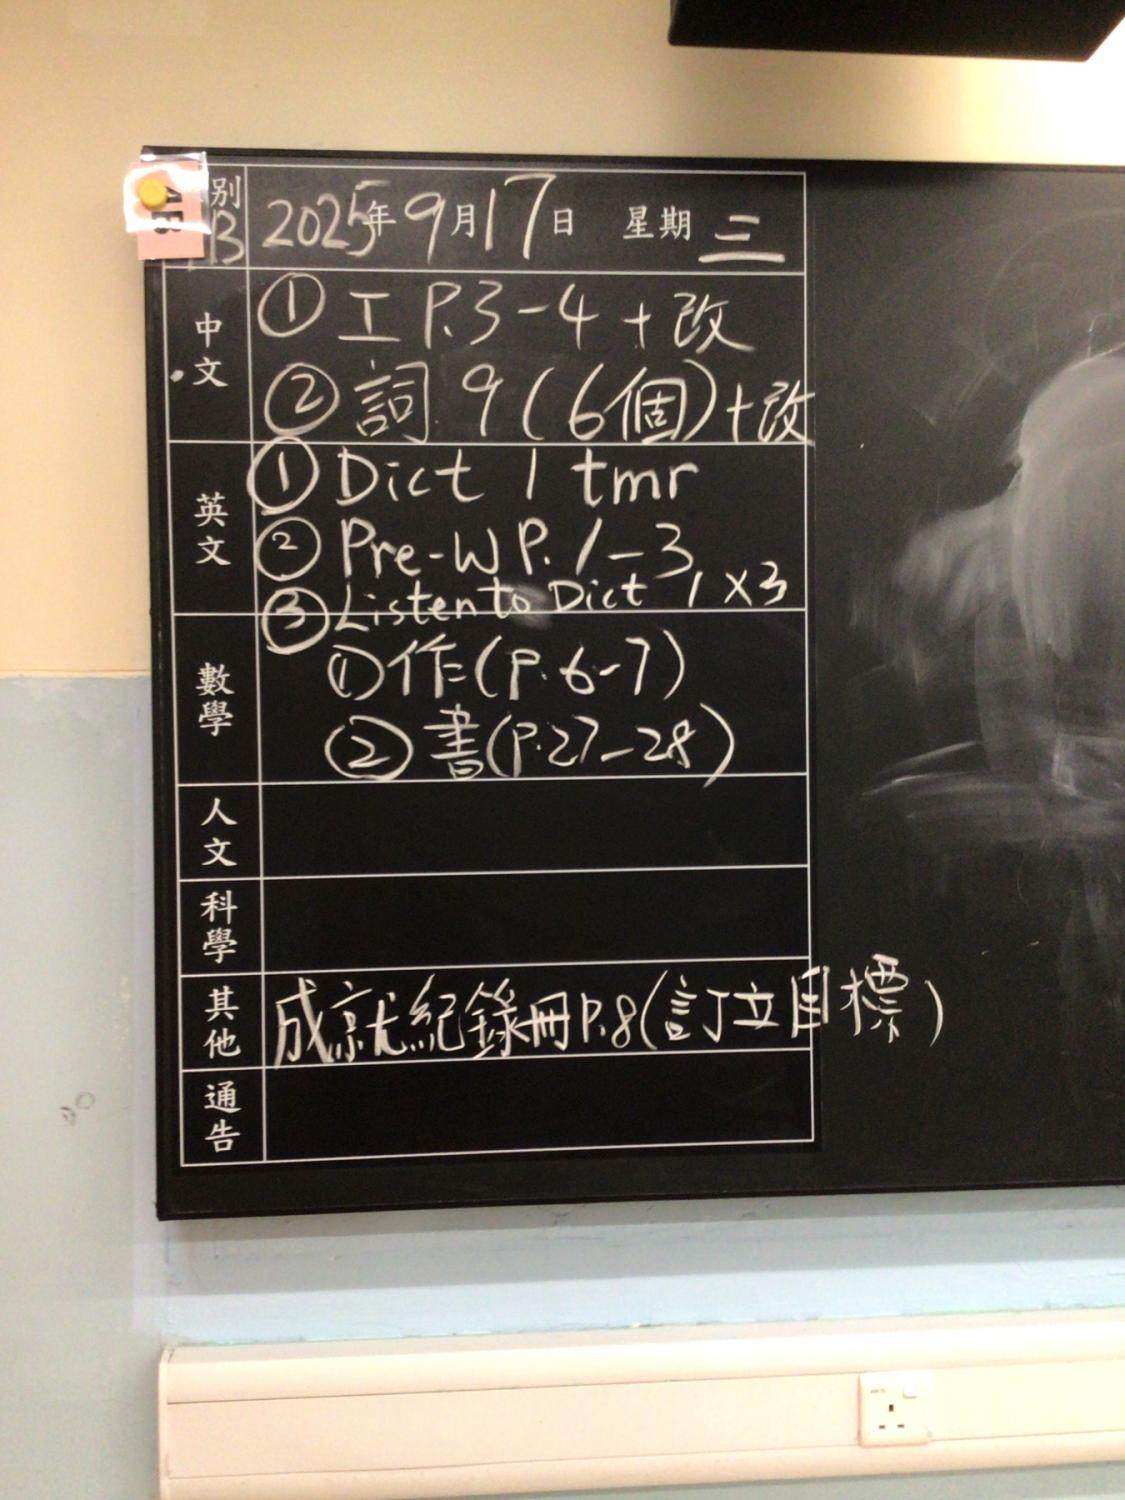 別
2025年9月17日 星期三
中文
① 工 P.3-4 + 改
② 詞 9 (6個) + 改
英文
① Dict 1 tmr
② Pre-W P. 1-3
③ Listen to Dict 1 x3
數學
① 作 (P. 6-7)
② 書 (P.27-28)
人文
科學
其他
成就紀錄冊 P.8 (訂立目標)
通告